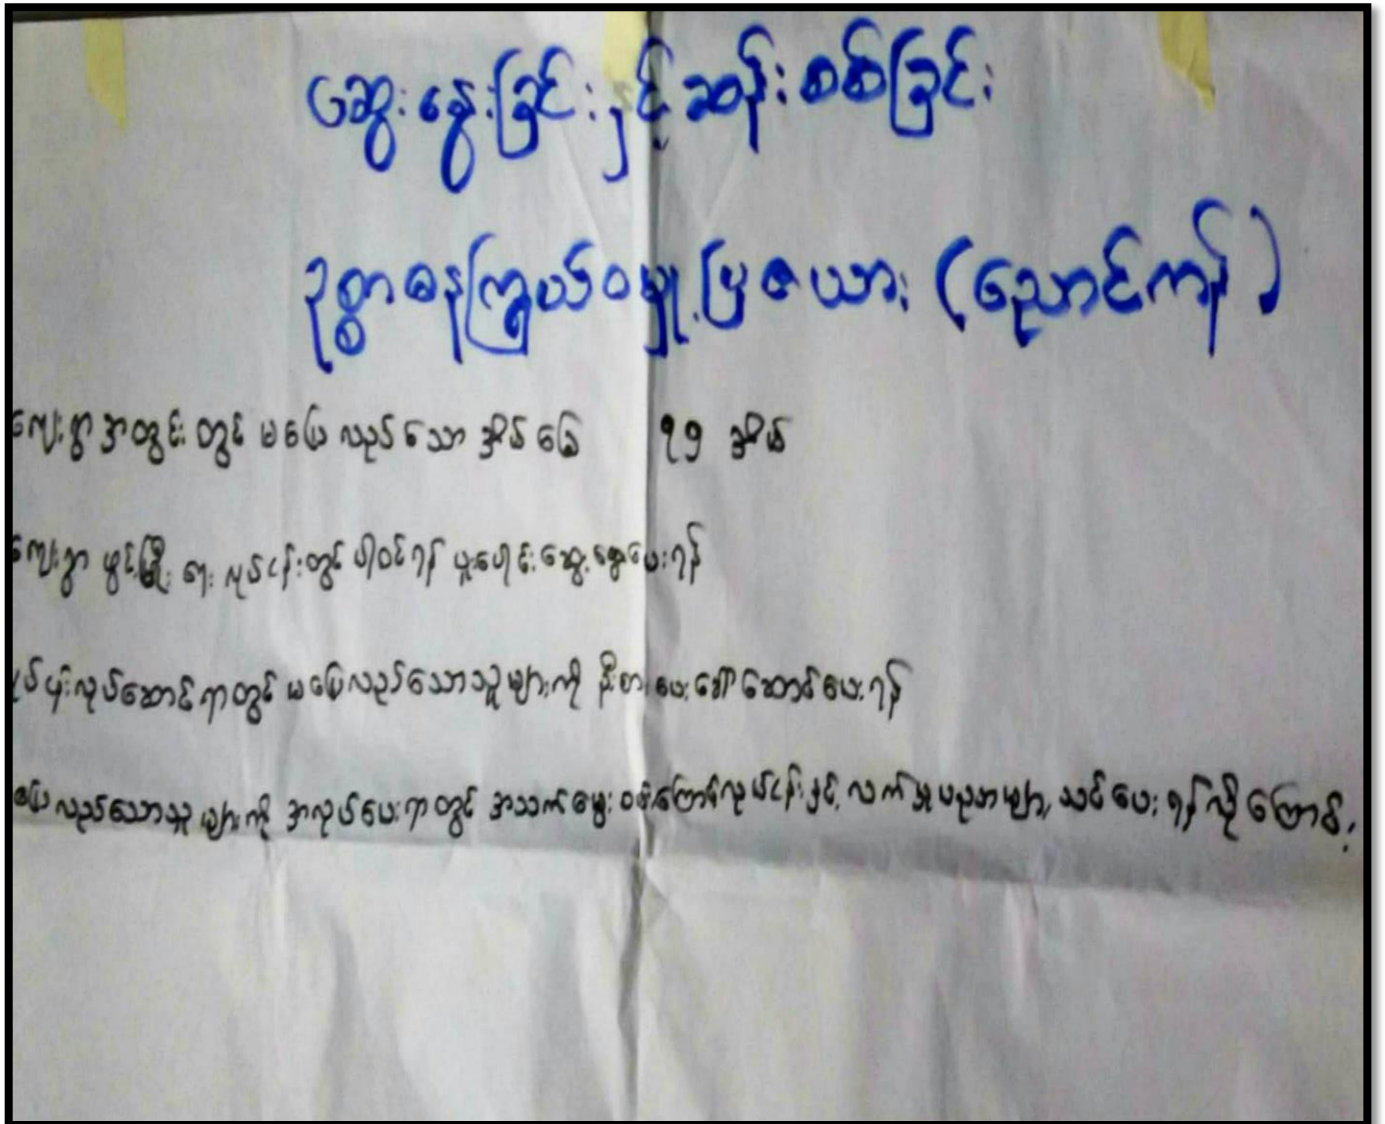 ဆွေးနွေးခြင်းနှင့်ဆန်းစစ်ခြင်း
ဥစ္စာဓနကြွယ်ဝမှုပြဇယား (ညောင်ကန်)
ကျေးရွာအတွင်းတွင် မပြေလည်သော အိမ်ခြေ ၅ အိမ်
ကျေးရွာ ဖွံ့ဖြိုးရေး လုပ်ငန်းတွင် ပါဝင်ရန် ပူးပေါင်းဆွေးနွေးပေးရန်
လုပ်ဆောင်ရာတွင် မပြေလည်သောသူများကို ဦးစားပေးခေါ်ဆောင်ပေးရန်
မပြေလည်သောသူများကို အလုပ်ပေးရာတွင် အသက်မွေးဝမ်းကြောင်းလုပ်ငန်းနှင့် လက်မှုပညာများ သင်ပေးရန်လိုကြောင့်